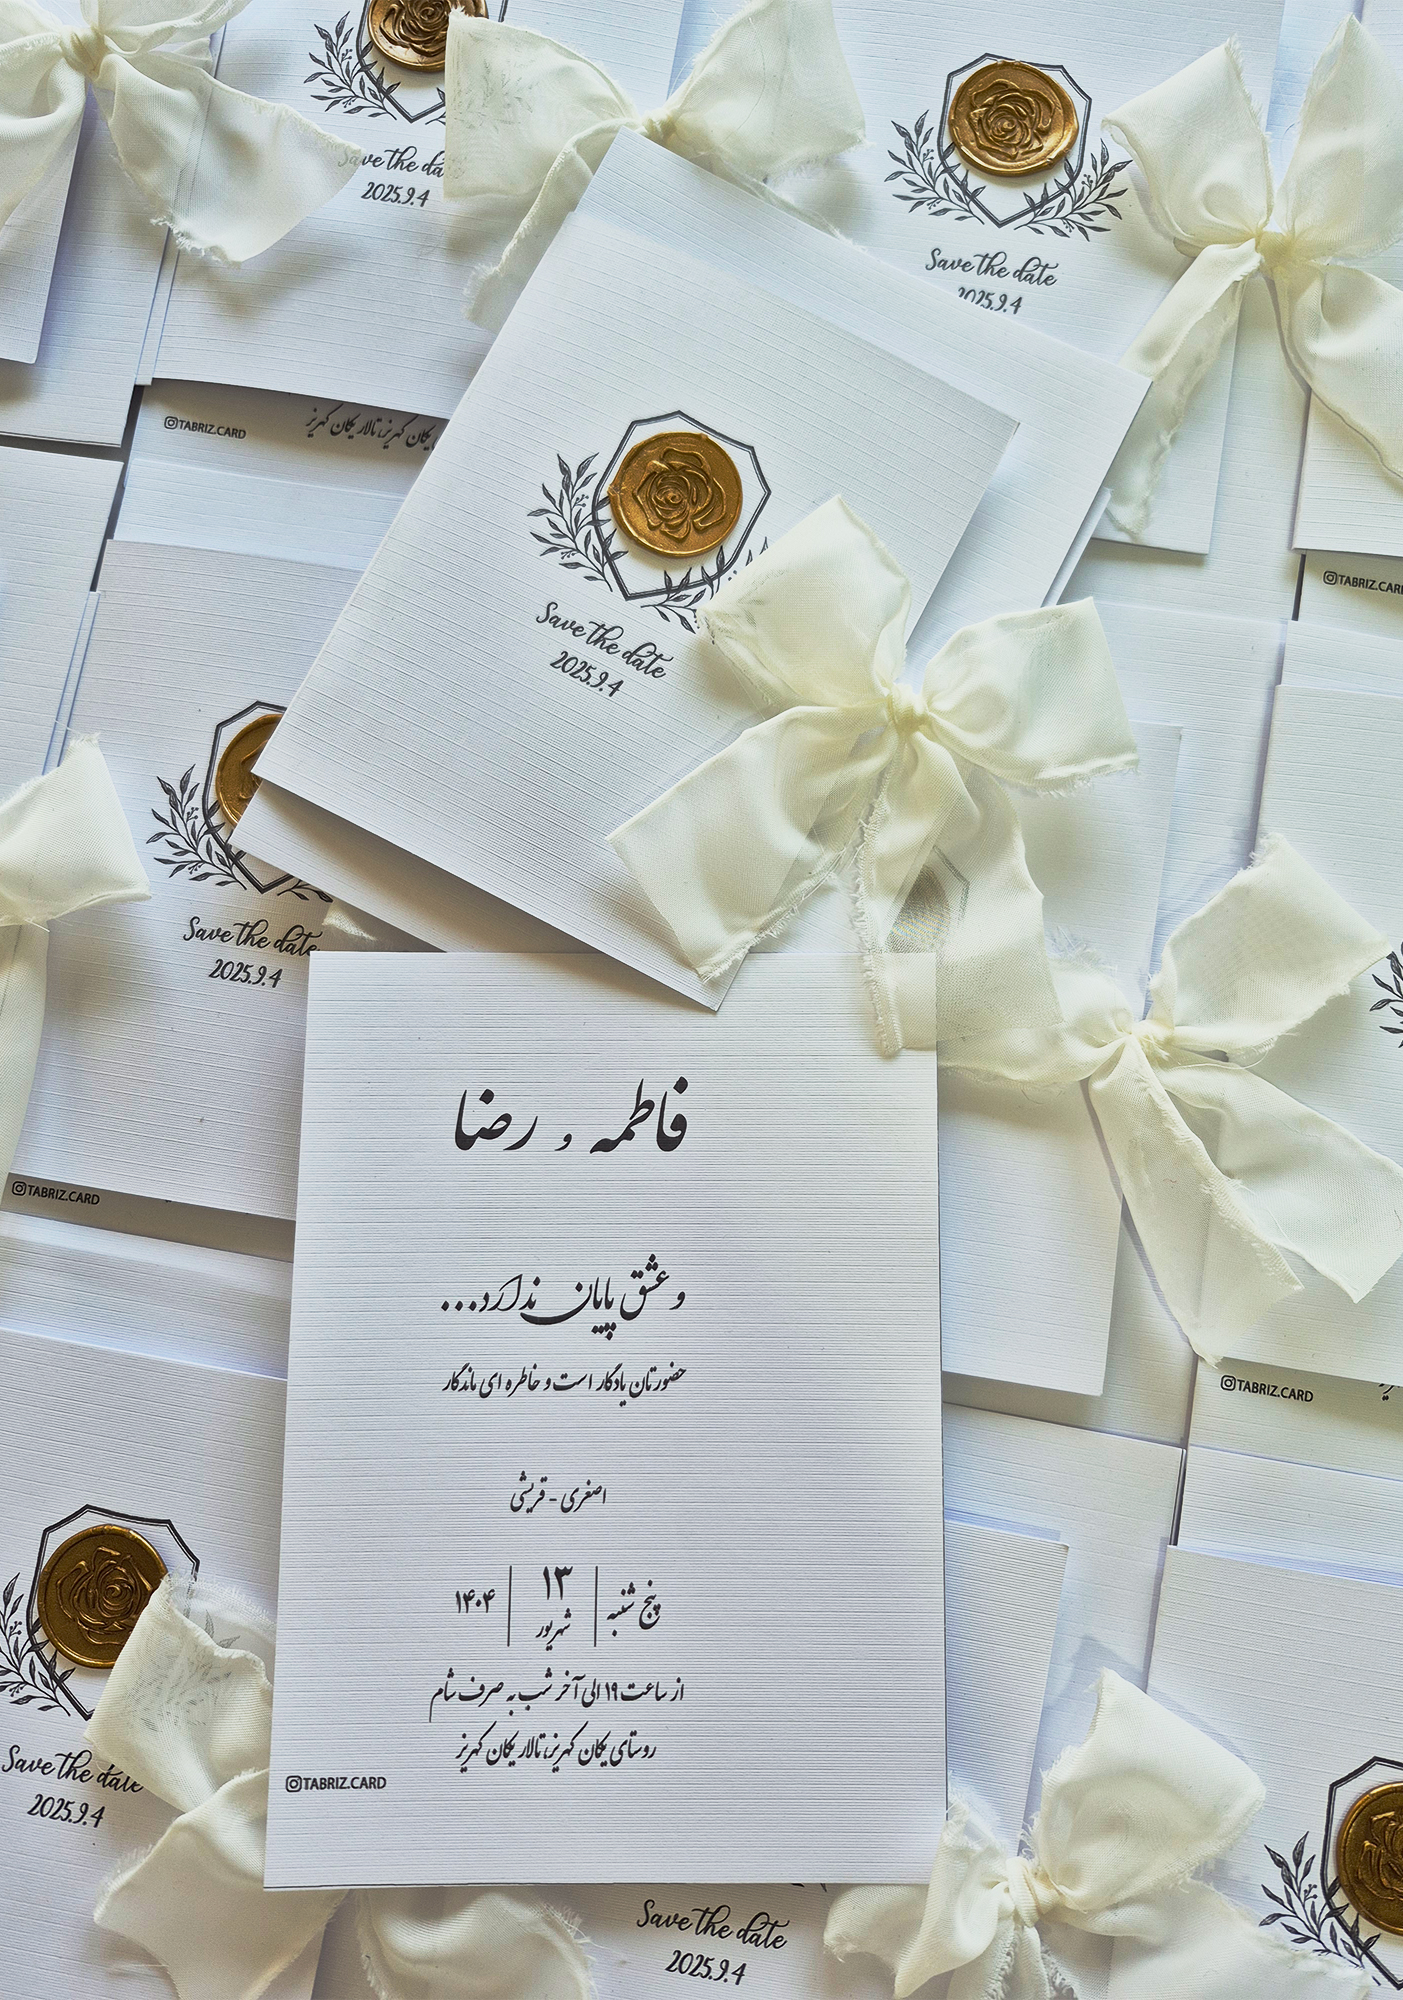 Save the da
2025.9.4
Save the date
2025.9.4
TABRIZ.CARD
تالار یکان کهریز
Save the date
2025.9.4
TABRIZ.CARD
Save the date
2025.9.4
TABRIZ.CARD
فاطمه و رضا
و عشق پایان ندارد...
حضورتان یادگار است و خاطره ای ماندگار
اصغری - قریشی
پنج شنبه | ۱۳ شهریور | ۱۴۰۴
از ساعت ۱۹ الی آخر شب به صرف شام
روستای یکان کهریز، تالار یکان کهریز
TABRIZ.CARD
TABRIZ.CARD
Save the date
2025.9.4
Save the date
2025.9.4